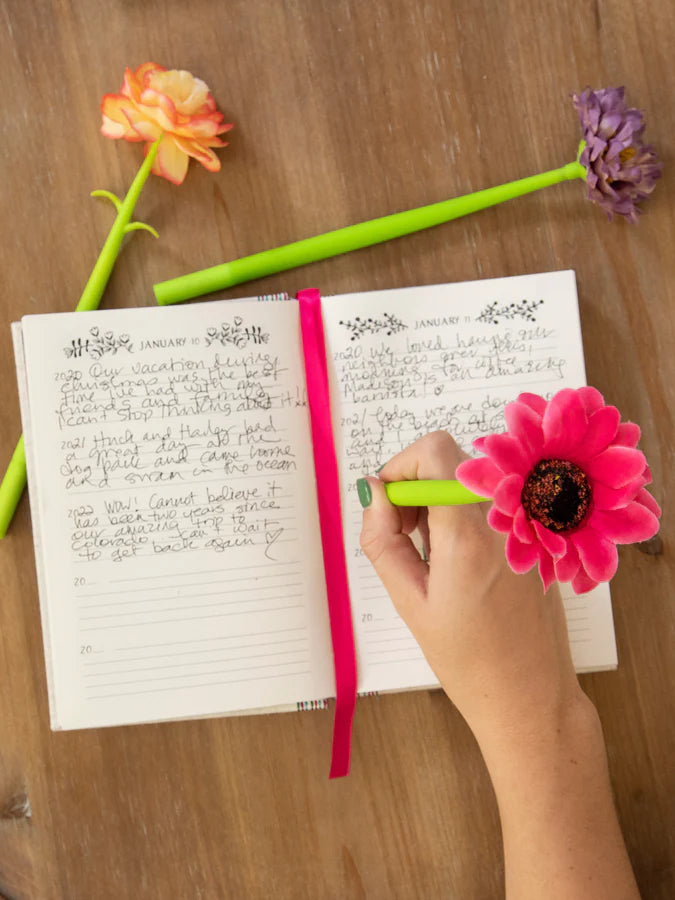 JANUARY 10
2020 Our vacation during
Christmas was the best
time I've had with my
friends and family
I can't stop thinking about it!
2021 Huck and Harley had
a great day at the
dog park and came home
and swam in the ocean
2022 Wow! Cannot believe it
has been two years since
our amazing trip to
Colorado. Can wait
to get back again
20
20
JANUARY 11
2020 We loved
neighbors over
morning for coffee
Madison is an amazing
barista!
2021 Today we are
on the beach
20
20